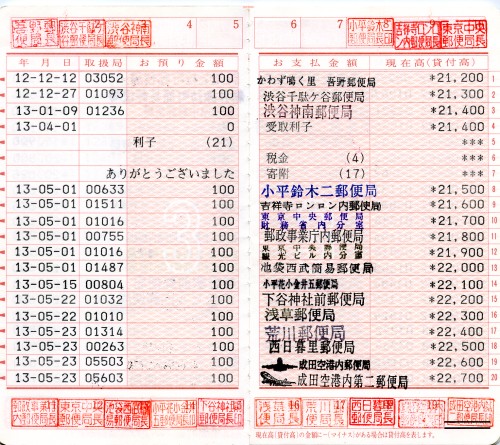 吾野 2 郵便局長 渋谷千駄ケ谷郵便局長 渋谷神南郵便局長 4 5 6 7 小平鈴木二 8 郵便局長 吉祥寺ロンロン内郵便局長 東京中央郵便局長
年月日 取扱局 お預り金額 お支払金額 現在高(貸付高)
12-12-12 03052 100 かわず鳴く里 吾野郵便局 *21,200 1
12-12-27 01093 100 渋谷千駄ケ谷郵便局 *21,300 2
13-01-09 01236 100 渋谷神南郵便局 *21,400 3
13-04-01 0 受取利子 *21,400 4
利子 (21) *** 5
税金 (4) *** 6
ありがとうございました 寄附 (17) *** 7
13-05-01 00633 100 小平鈴木二郵便局 *21,500 8
13-05-01 01511 100 吉祥寺ロンロン内郵便局 *21,600 9
13-05-01 01016 100 東京中央郵便局財務省内分室 *21,700 10
13-05-01 00755 100 郵政事業庁内郵便局 *21,800 11
13-05-01 01016 100 東京中央郵便局観光ビル内分室 *21,900 12
13-05-01 01487 100 池袋西武簡易郵便局 *22,000 13
13-05-15 00804 100 小平花小金井五郵便局 *22,100 14
13-05-22 01032 100 下谷神社前郵便局 *22,200 15
13-05-22 01010 100 浅草郵便局 *22,300 16
13-05-23 01314 100 荒川郵便局 *22,400 17
13-05-23 00263 100 西日暮里郵便局 *22,500 18
13-05-23 05503 100 成田空港内郵便局 *22,600 19
13-05-23 05603 100 成田空港内第二郵便局 *22,700 20
東京中 12 浅草 16 荒川 17 西日暮里
現在高(貸付高)の金額に-(マイナス)がある場合は貸付高を表します。